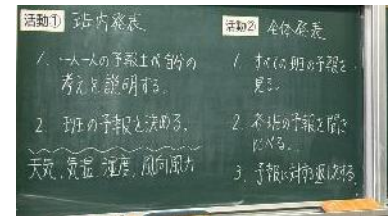 活動① 班内発表
1. 一人一人の予報士が自分の
考えを説明する。
2. 班の予報を決める。
天気、気温、湿度、風向風力
活動② 全体発表
1. すべての班の予報を
見る。
2. 各班の予報を聞き
比べる。
3. 予報に対する